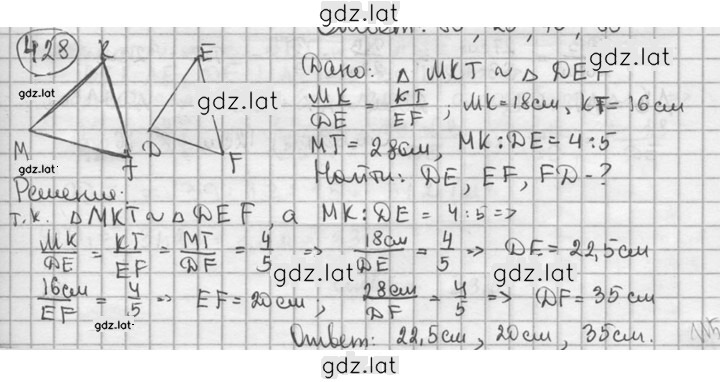 gdz.lat
Ответ:
428
K E
M T D F
gdz.lat
gdz.lat
gdz.lat
Дано: △ MKT ∾ △ DEF
MK/DE = KT/EF ; MK=18см, KT=16см
MT=28см, MK:DE=4:5
Найти: DE, EF, FD-?
Решение:
т.к. △ MKT ∾ △ DEF, а MK:DE = 4:5 =>
MK/DE = KT/EF = MT/DF = 4/5 => 18см/DE = 4/5 => DE = 22,5см
gdz.lat
gdz.lat
16см/EF = 4/5 => EF=20см; 28см/DF = 4/5 => DF=35см
gdz.lat
Ответ: 22,5см, 20см, 35см.
gdz.lat